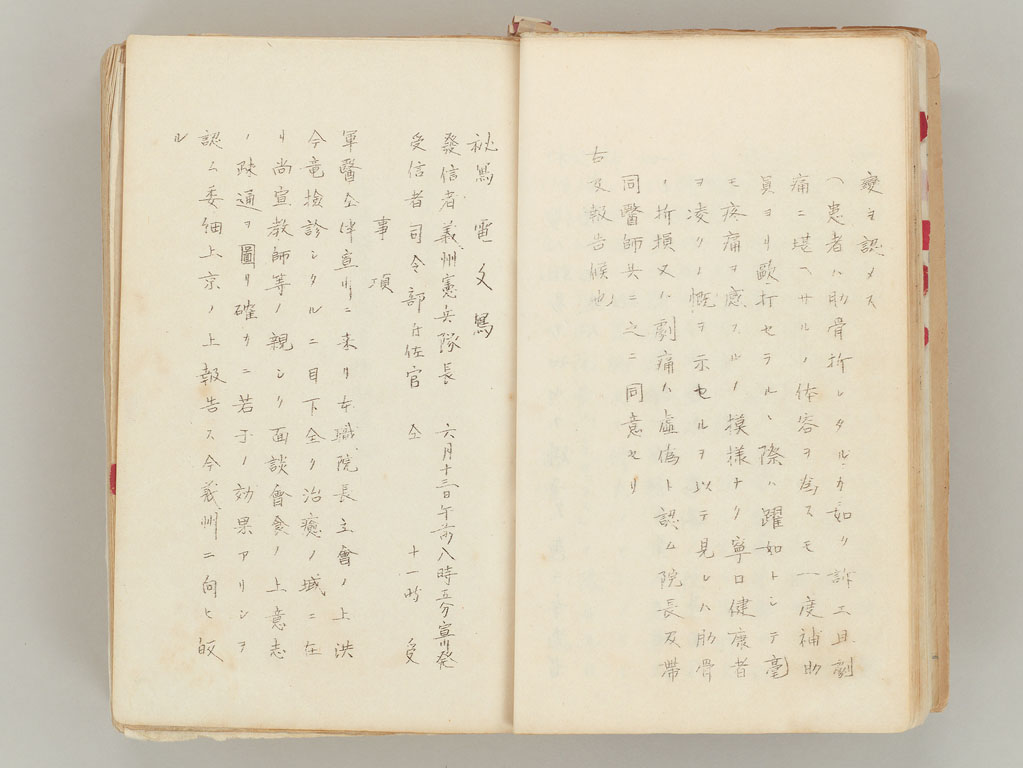 変ヲ認メス
ヘ患者ハ肋骨折レタルカ如ク訴エ且劇
痛ニ堪ヘサルノ体容ヲ為スモ一度補助
員ヨリ歐打セラルヽ際ハ躍如トシテ毫
モ疼痛ヲ感スルノ摸様ナク寧ロ健康者
ヲ凌クノ慨ヲ示セルヲ以テ見レハ肋骨
ノ折損又ハ劇痛ハ虚偽ト認ム院長及帶
同醫師共ニ之ニ同意セリ
右及報告候也
秘寫電文寫
發信者義州憲兵隊長 六月十三日午前八時五分宣川発
受信者司令部 佐官 仝 十一時 受
事項
軍醫仝伴宣川ニ来リ本職院長立會ノ上洪
今竜撿診シタルニ目下全ク治癒ノ域ニ在
リ尚宣教師等ノ親シク面談會食ノ上意志
ノ疎通ヲ圖リ確カニ若干ノ効果アリシヲ
認ム委細上京ノ上報告ス今義州ニ向ヒ皈
ル